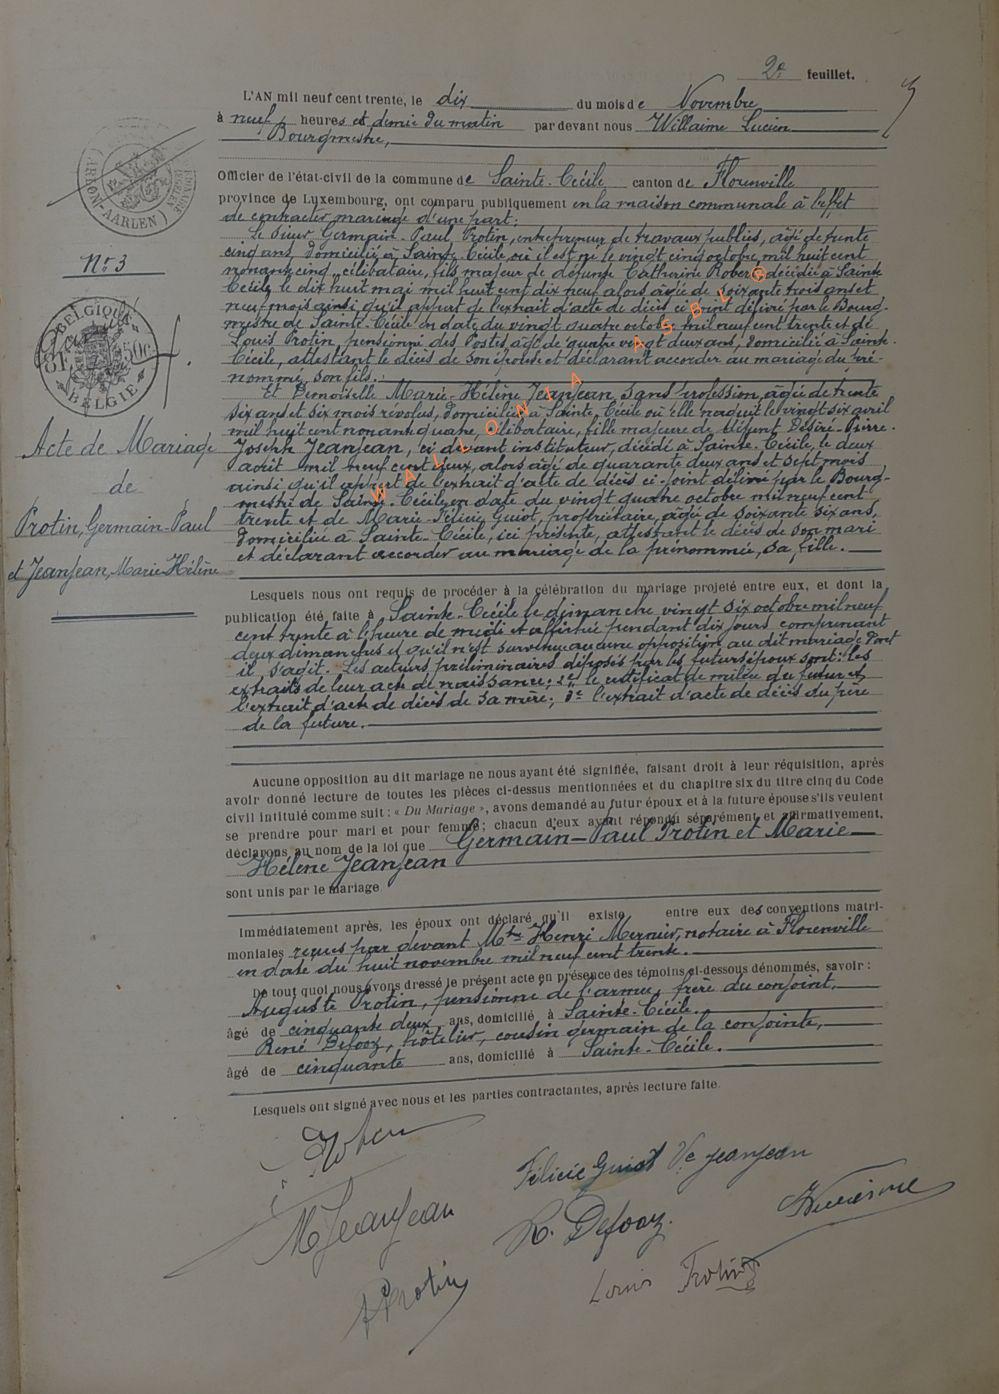 2e feuillet.
L'AN mil neuf cent trente, le dix du mois de Novembre
à neuf heures et demie du matin par devant nous Willaime Lucien
Bourgmestre,
Officier de l'état-civil de la commune de Sainte-Cécile canton de Florenville
province de Luxembourg, ont comparu publiquement en la maison communale à l'effet
de contracter mariage d'une part:
Le sieur Germain-Paul Protin, entrepreneur de travaux publics, âgé de trente
cinq ans, domicilié à Sainte-Cécile où il est né le vingt cinq octobre mil huit cent
nonante cinq, célibataire, fils majeur de défunte Catherine Robert décédée à Sainte
Cécile le dix huit mai mil huit cent dix neuf alors âgée de soixante trois ans et
neuf mois ainsi qu'il appert de l'extrait d'acte de décès ci-joint délivré par le Bourg-
mestre de Sainte-Cécile en date du vingt quatre octobre mil neuf cent trente et de
Louis Protin, pensionné des Postes âgé de quatre vingt deux ans, domicilié à Sainte-
Cécile, attestant le décès de son épouse et déclarant accorder au mariage du pré-
nommé, son fils.
Et Demoiselle Marie-Hélène Jeanjean, sans profession, âgée de trente
six ans et six mois révolus, domiciliée à Sainte-Cécile où elle naquit le vingt six avril
mil huit cent nonante quatre, célibataire, fille majeure de défunt Désiré-Pierre-
Joseph Jeanjean, ci devant instituteur, décédé à Sainte-Cécile, le deux
août mil neuf cent deux, alors âgé de quarante deux ans et sept mois
ainsi qu'il appert de l'extrait d'acte de décès ci-joint délivré par le Bourg-
mestre de Sainte-Cécile en date du vingt quatre octobre mil neuf cent
trente et de Marie-Félicie Guiot, propriétaire, âgée de soixante six ans,
domiciliée à Sainte-Cécile, ici présente, attestant le décès de son mari
et déclarant accorder au mariage de la prénommée, sa fille.
Nº 3
ARLON-AARLEN
BELGIQUE
50c
BELGIË
Acte de Mariage
de
Protin, Germain-Paul
et Jeanjean, Marie-Hélène
WALLONIA ASBL ®
Lesquels nous ont requis de procéder à la célébration du mariage projeté entre eux, et dont la
publication été faite à Sainte-Cécile le dimanche vingt six octobre mil neuf
cent trente à l'heure de midi et affichée pendant dix jours comprenant
deux dimanches et qu'il n'est survenu aucune opposition au dit mariage dont
il s'agit. Les acteurs préliminaires déposés par les futurs époux sont: les
extraits de leur acte de naissance; 2e le certificat de milice du futur et
l'extrait d'acte de décès de sa mère; 3e l'extrait d'acte de décès du père
de la future.
Aucune opposition au dit mariage ne nous ayant été signifiée, faisant droit à leur réquisition, après
avoir donné lecture de toutes les pièces ci-dessus mentionnées et du chapitre six du titre cinq du Code
civil intitulé comme suit: « Du Mariage », avons demandé au futur époux et à la future épouse s'ils veulent
se prendre pour mari et pour femme; chacun d'eux ayant répondu séparément et affirmativement,
déclarons au nom de la loi que Germain-Paul Protin et Marie-
Hélène Jeanjean
sont unis par le mariage
Immédiatement après, les époux ont déclaré qu'il existe entre eux des conventions matri-
moniales reçues par devant Mtre Henri Mernier, notaire à Florenville
en date du huit novembre mil neuf cent trente.
De tout quoi nous avons dressé le présent acte en présence des témoins ci-dessous dénommés, savoir:
Auguste Protin, pensionné de l'armée, frère du conjoint,
âgé de cinquante deux ans, domicilié à Sainte-Cécile.
René Defooz, hôtelier, cousin germain de la conjointe,
âgé de cinquante ans, domicilié à Sainte-Cécile.
Lesquels ont signé avec nous et les parties contractantes, après lecture faite.
Félicie Guiot Ve Jeanjean
M Jeanjean
R. Defooz.
A Protin
Louis Protin